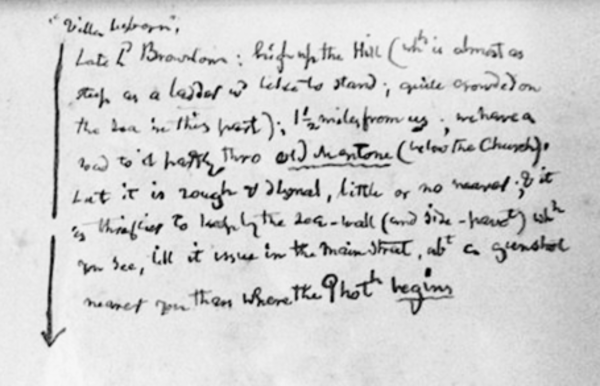 "Villa
Late Ld Brownlow: high up the Hill (whh is almost as
steep as a ladder wd like to stand; quite crowded on
the sea in this part); 1½ miles from us; we have a
road to it partly thro old Mentone (below the Church).
but it is rough & d, little or no nearer; & it
is thriftier to keep by the sea-wall (and side-pavet) whh
you see, till it issue in the main street, abt a gunshot
nearer you than where the Photh begins